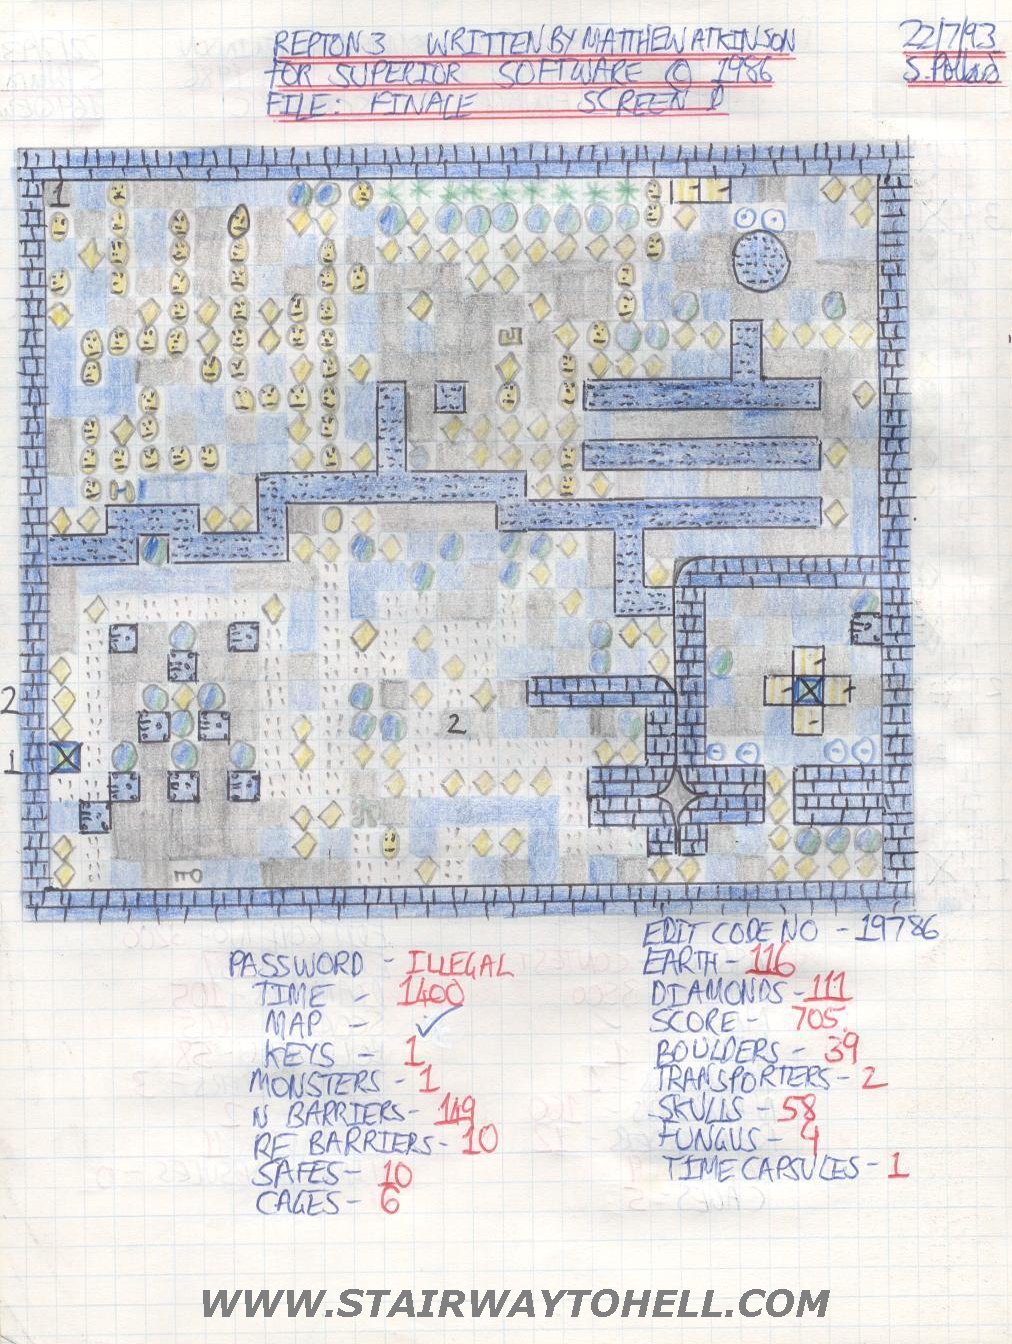 REPTON 3 WRITTEN BY MATTHEW ATKINSON
FOR SUPERIOR SOFTWARE © 1986
FILE: FINALE SCREEN
22/7/93
S. Pollard
1
2
1
2
PASSWORD - ILLEGAL
TIME - 1400
MAP - ✓
KEYS - 1
MONSTERS - 1
N BARRIERS - 149
RF BARRIERS - 10
SAFES - 10
CAGES - 6
EDIT CODE NO - 19786
EARTH - 116
DIAMONDS - 111
SCORE - 705
BOULDERS - 39
TRANSPORTERS - 2
SKULLS - 58
FUNGUS - 9
TIME CAPSULES - 1
WWW.STAIRWAYTOHELL.COM